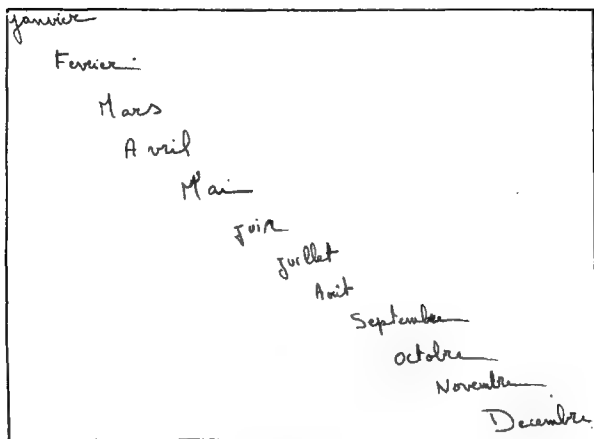 janvier
Fevrier
Mars
Avril
Mai
juin
juillet
Août
Septembre
octobre
Novembre
Decembre